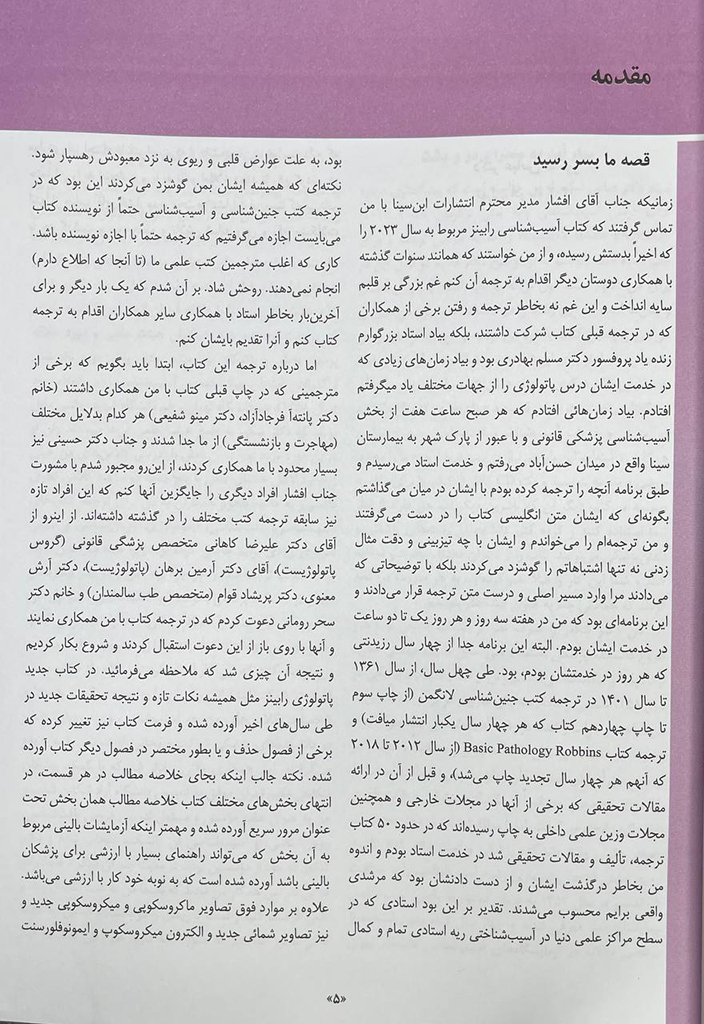 مقدمه
قصه ما بسر رسید
زمانیکه جناب آقای افشار مدیر محترم انتشارات ابن‌سینا با من
تماس گرفتند که کتاب آسیب‌شناسی رابینز مربوط به سال ۲۰۲۳ را
که اخیراً بدستش رسیده، و از من خواستند که همانند سنوات گذشته
با همکاری دوستان دیگر اقدام به ترجمه آن کنم غم بزرگی بر قلبم
سایه انداخت و این غم نه بخاطر ترجمه و رفتن برخی از همکاران
که در ترجمه قبلی کتاب شرکت داشتند، بلکه بیاد استاد بزرگوارم
زنده یاد پروفسور دکتر مسلم بهادری بود و بیاد زمان‌های زیادی که
در خدمت ایشان درس پاتولوژی را از جهات مختلف یاد میگرفتم
افتادم. بیاد زمان‌هائی افتادم که هر صبح ساعت هفت از بخش
آسیب‌شناسی پزشکی قانونی و با عبور از پارک شهر به بیمارستان
سینا واقع در میدان حسن‌آباد می‌رفتم و خدمت استاد می‌رسیدم و
طبق برنامه آنچه را ترجمه کرده بودم با ایشان در میان می‌گذاشتم
بگونه‌ای که ایشان متن انگلیسی کتاب را در دست می‌گرفتند
و من ترجمه‌ام را می‌خواندم و ایشان با چه تیزبینی و دقت مثال
زدنی نه تنها اشتباهاتم را گوشزد می‌کردند بلکه با توضیحاتی که
می‌دادند مرا وارد مسیر اصلی و درست متن ترجمه قرار می‌دادند و
این برنامه‌ای بود که من در هفته سه روز و هر روز یک تا دو ساعت
در خدمت ایشان بودم. البته این برنامه جدا از چهار سال رزیدنتی
که هر روز در خدمتشان بودم، بود. طی چهل سال، از سال ۱۳۶۱
تا سال ۱۴۰۱ در ترجمه کتب جنین‌شناسی لانگمن (از چاپ سوم
تا چاپ چهاردهم کتاب که هر چهار سال یکبار انتشار میافت) و
ترجمه کتاب Basic Pathology Robbins (از سال ۲۰۱۲ تا ۲۰۱۸
که آنهم هر چهار سال تجدید چاپ می‌شد)، و قبل از آن در ارائه
مقالات تحقیقی که برخی از آنها در مجلات خارجی و همچنین
مجلات وزین علمی داخلی به چاپ رسیده‌اند که در حدود ۵۰ کتاب
ترجمه، تألیف و مقالات تحقیقی شد در خدمت استاد بودم و اندوه
من بخاطر درگذشت ایشان و از دست دادنشان بود که مرشدی
واقعی برایم محسوب می‌شدند. تقدیر بر این بود استادی که در
سطح مراکز علمی دنیا در آسیب‌شناختی ریه استادی تمام و کمال
بود، به علت عوارض قلبی و ریوی به نزد معبودش رهسپار شود.
نکته‌ای که همیشه ایشان بمن گوشزد می‌کردند این بود که در
ترجمه کتب جنین‌شناسی و آسیب‌شناسی حتماً از نویسنده کتاب
می‌بایست اجازه می‌گرفتیم که ترجمه حتماً با اجازه نویسنده باشد.
کاری که اغلب مترجمین کتب علمی ما (تا آنجا که اطلاع دارم)
انجام نمی‌دهند. روحش شاد. بر آن شدم که یک بار دیگر و برای
آخرین‌بار بخاطر استاد با همکاری سایر همکاران اقدام به ترجمه
کتاب کنم و آنرا تقدیم بایشان کنم.
اما درباره ترجمه این کتاب، ابتدا باید بگویم که برخی از
مترجمینی که در چاپ قبلی کتاب با من همکاری داشتند (خانم
دکتر پانته‌آ فرجادآزاد، دکتر مینو شفیعی) هر کدام بدلایل مختلف
(مهاجرت و بازنشستگی) از ما جدا شدند و جناب دکتر حسینی نیز
بسیار محدود با ما همکاری کردند، از این‌رو مجبور شدم با مشورت
جناب افشار افراد دیگری را جایگزین آنها کنم که این افراد تازه
نیز سابقه ترجمه کتب مختلف را در گذشته داشته‌اند. از اینرو از
آقای دکتر علیرضا کاهانی متخصص پزشگی قانونی (گروس
پاتولوژیست)، آقای دکتر آرمین برهان (پاتولوژیست)، دکتر آرش
معنوی، دکتر پریشاد قوام (متخصص طب سالمندان) و خانم دکتر
سحر رومانی دعوت کردم که در ترجمه کتاب با من همکاری نمایند
و آنها با روی باز از این دعوت استقبال کردند و شروع بکار کردیم
و نتیجه آن چیزی شد که ملاحظه می‌فرمائید. در کتاب جدید
پاتولوژی رابینز مثل همیشه نکات تازه و نتیجه تحقیقات جدید در
طی سال‌های اخیر آورده شده و فرمت کتاب نیز تغییر کرده که
برخی از فصول حذف و یا بطور مختصر در فصول دیگر کتاب آورده
شده. نکته جالب اینکه بجای خلاصه مطالب در هر قسمت، در
انتهای بخش‌های مختلف کتاب خلاصه مطالب همان بخش تحت
عنوان مرور سریع آورده شده و مهمتر اینکه آزمایشات بالینی مربوط
به آن بخش که می‌تواند راهنمای بسیار با ارزشی برای پزشکان
بالینی باشد آورده شده است که به نوبه خود کار با ارزشی می‌باشد.
علاوه بر موارد فوق تصاویر ماکروسکوپی و میکروسکوپی جدید و
نیز تصاویر شمائی جدید و الکترون میکروسکوپ و ایمونوفلورسنت
«۵»